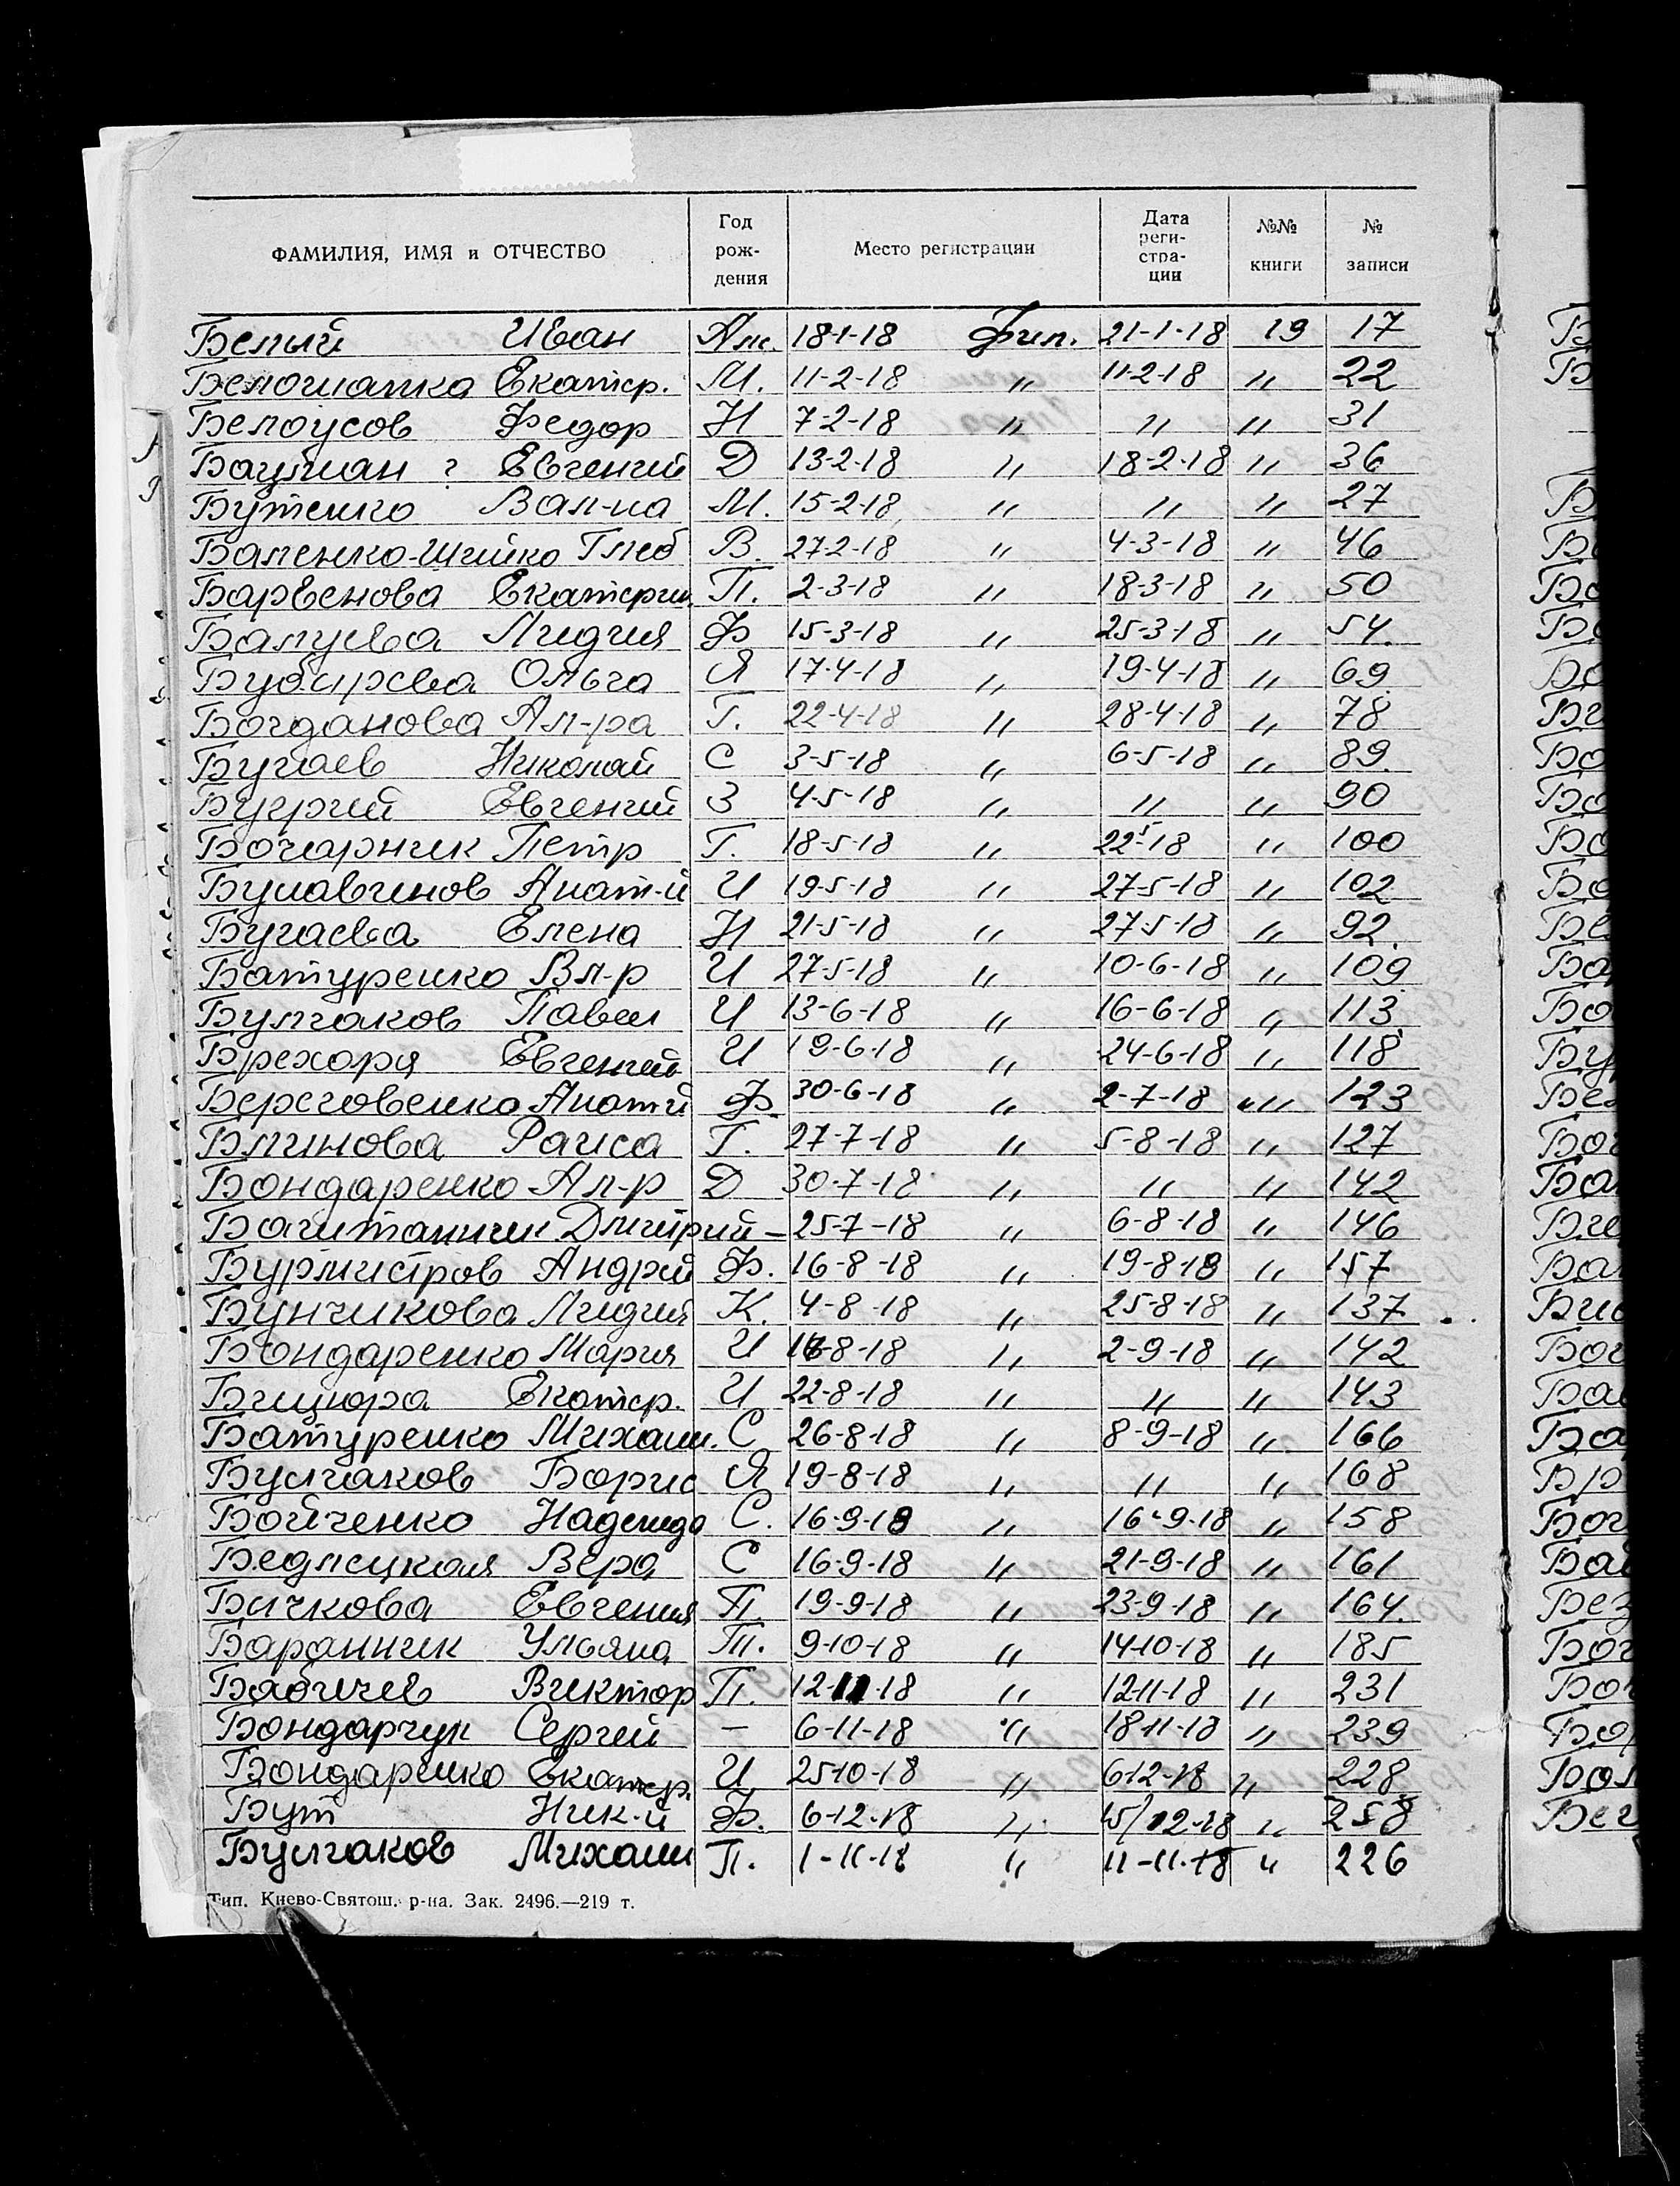 ФАМИЛИЯ, ИМЯ и ОТЧЕСТВО Год рож- дения Место регистрации Дата реги- стра- ции №№ книги № записи
Белый Иван Ам. 18-1-18 Фил. 21-1-18 19 17
Белошапка Екатер. М. 11-2-18 " 11-2-18 " 22
Белоусов Федор Н 7-2-18 " " " 31
Бауман ? Евгений Д 13-2-18 " 18-2-18 " 36
Бутенко Вал-на М. 15-2-18 " " " 27
Баленко-Шийко Глеб В. 27-2-18 " 4-3-18 " 46
Барвенова Екатерин. П. 2-3-18 " 18-3-18 " 50
Балуева Лидия Ф 15-3-18 " 25-3-18 " 54.
Бубырева Ольга Я 17-4-18 " 19-4-18 " 69
Богданова Ал-ра Г. 22-4-18 " 28-4-18 " 78
Бугаев Николай С 3-5-18 " 6-5-18 " 89
Евгений З 4-5-18 " " " 90
Бочарник Петр Г. 18-5-18 " 22-5-18 " 100
Булавинов Анат-й И 19-5-18 " 27-5-18 " 102
Бугаева Елена Н 21-5-18 " 27-5-18 " 92.
Батуренко Вл-р И 27-5-18 " 10-6-18 " 109
Булгаков Павел И 13-6-18 " 16-6-18 " 113
Брехоря Евгений И 19-6-18 " 24-6-18 " 118
Береговенко Анат-й Ф. 30-6-18 " 2-7-18 " 123
Блинова Раиса Г. 27-7-18 " 5-8-18 " 127
Бондаренко Ал-р Д 30-7-18 " " " 142
Баштанник Дмитрий - 25-7-18 " 6-8-18 " 146
Бурмистров Андрей Ф. 16-8-18 " 19-8-18 " 157
Бунчикова Лидия К. 4-8-18 " 25-8-18 " 137
Бондаренко Мария И -8-18 " 2-9-18 " 142
Бицюра Екатер. И 22-8-18 " " " 143
Батуренко Михаил. С 26-8-18 " 8-9-18 " 166
Булгаков Борис Я 19-8-18 " " " 168
Бойченко Надежда С. 16-9-18 " 16-9-18 " 158
Бедлецкая Вера С 16-9-18 " 21-9-18 " 161
Бичкова Евгения П. 19-9-18 " 23-9-18 " 164.
Баранник Ульяна Т. 9-10-18 " 14-10-18 " 185
Бабичев Виктор П. 12-11-18 " 12-11-18 " 231
Бондарчук Сергей - 6-11-18 " 18-11-18 " 239
Бондаренко Екатер. И 25-10-18 " 6-12-18 " 228
Бут Ник-й Ф. 6-12-18 " 15/12-18 " 258
Булгаков Михаил П. 1-11-18 " 11-11-18 " 226
Тип. Киево-Святош. р-на. Зак. 2496.—219 т.